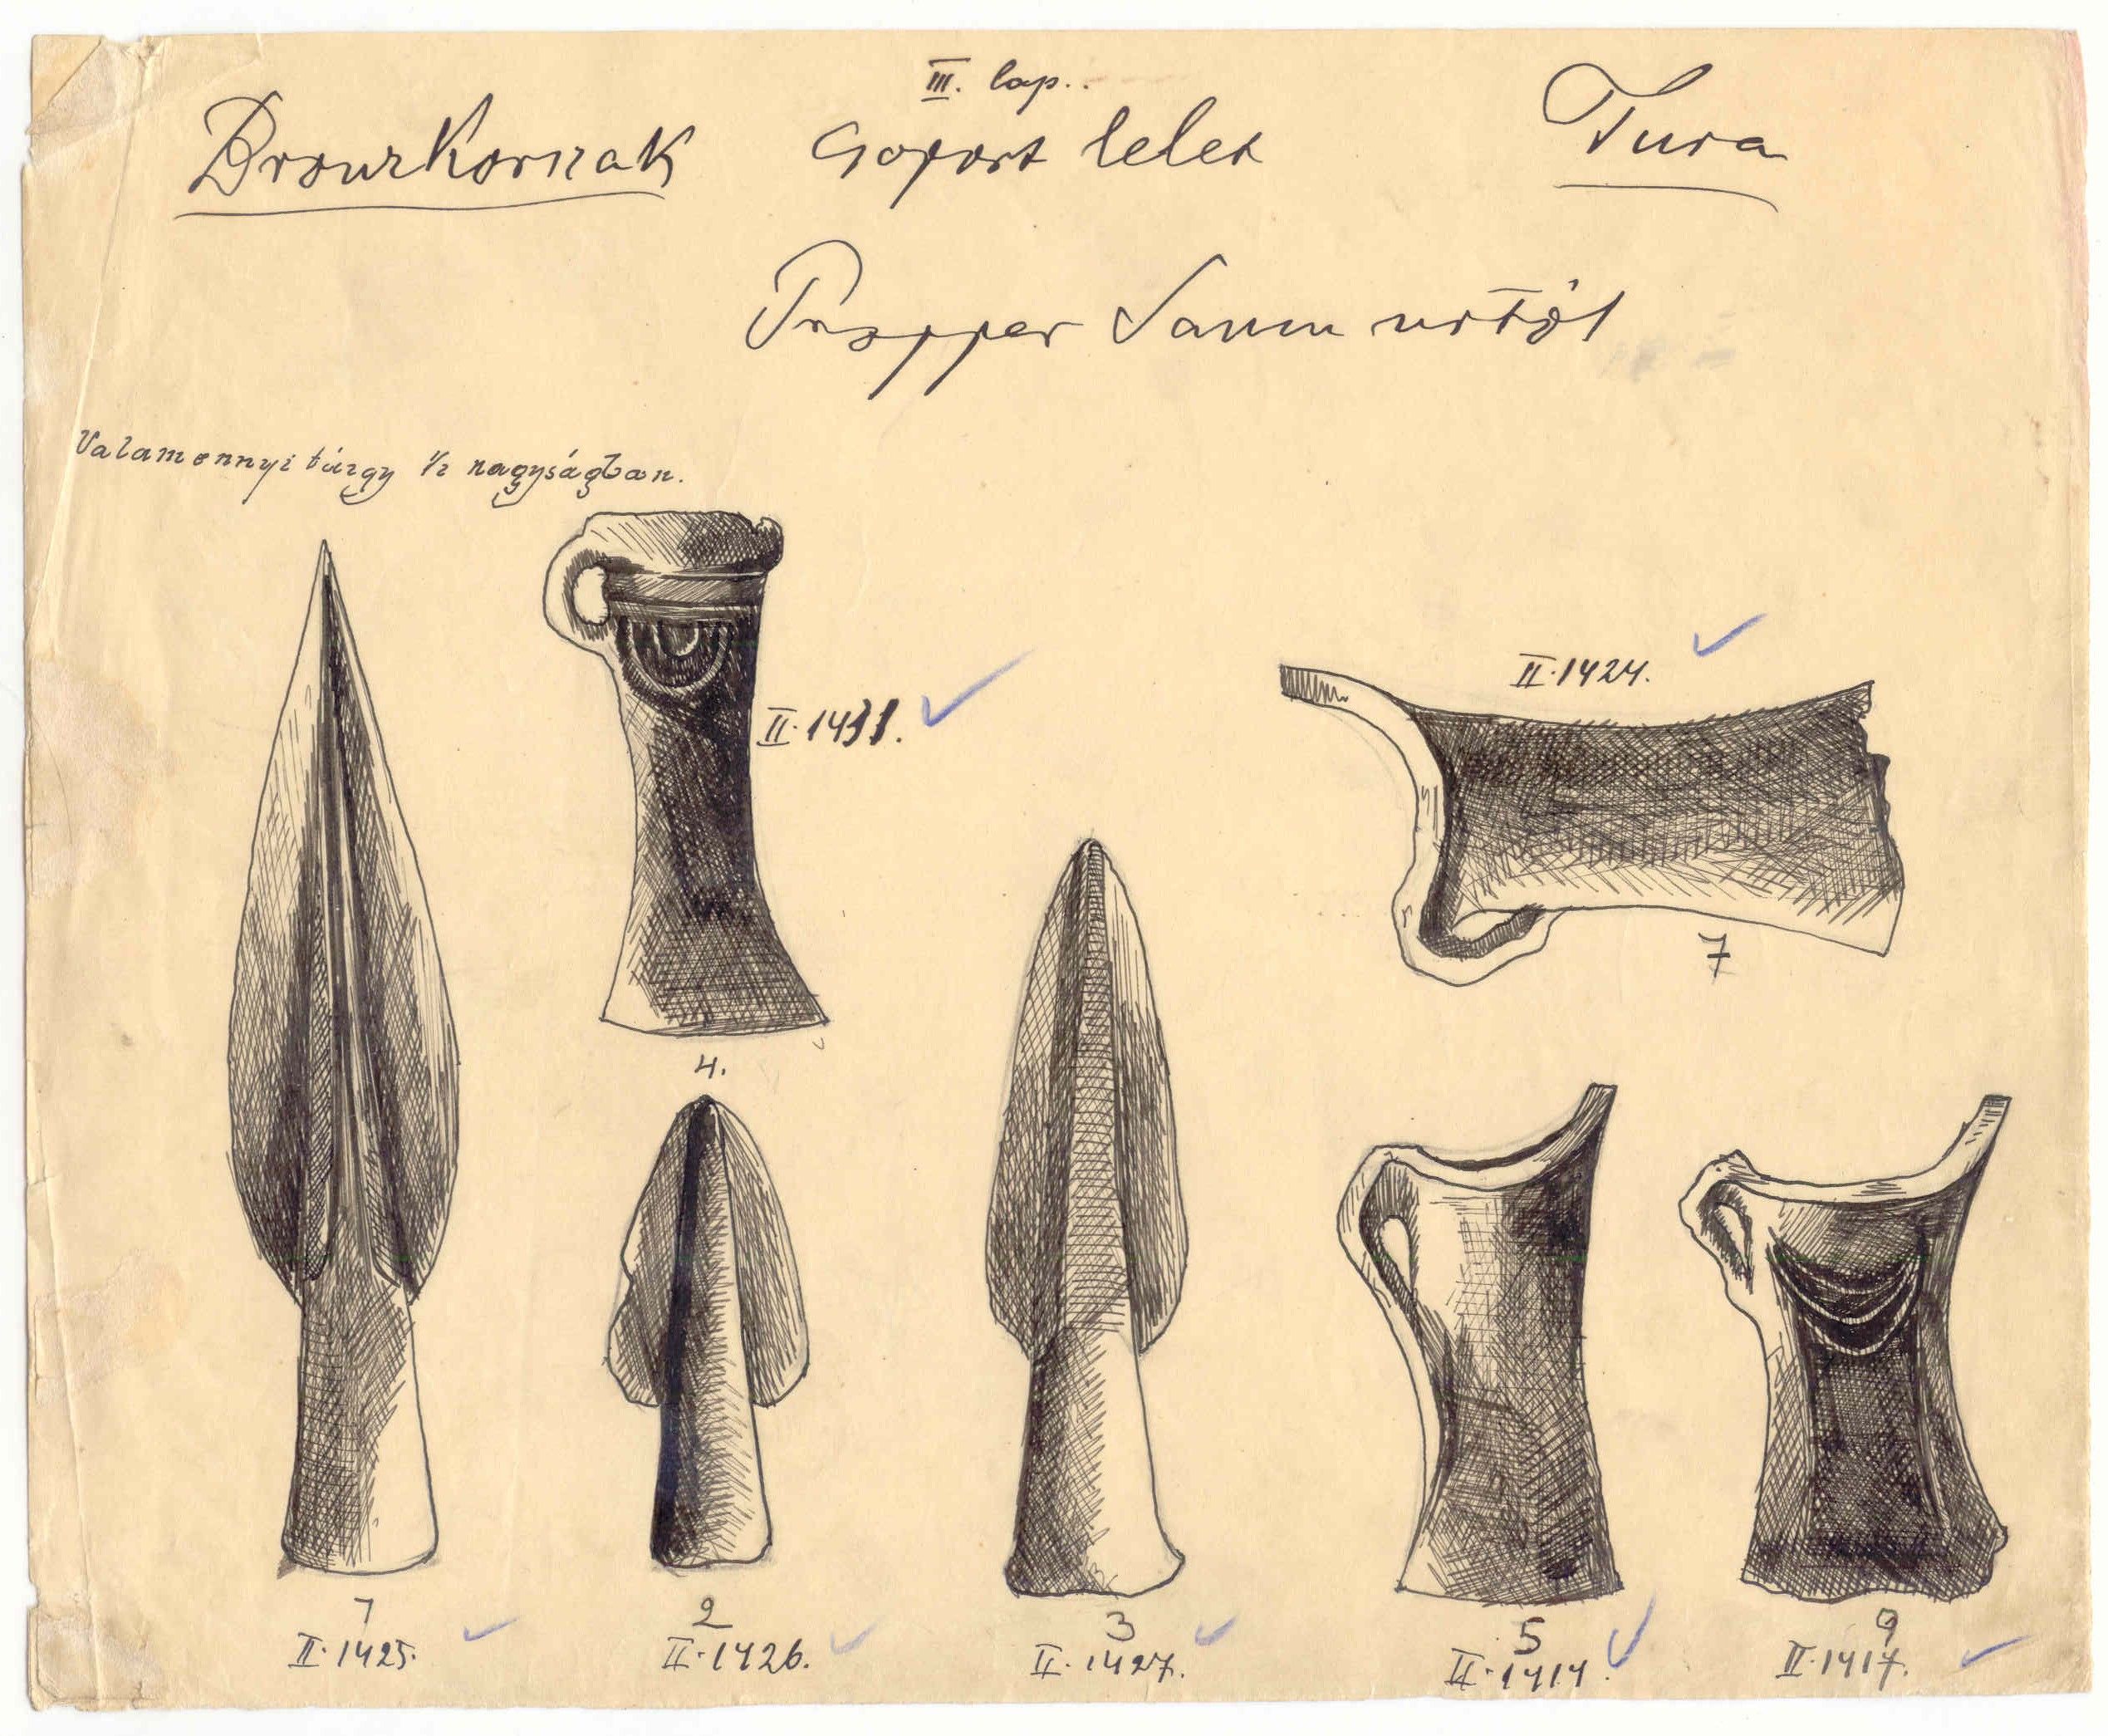 III. lap.
Bronzkorszak Csoport lelet Tura
Propper Samu úrtól
Valamennyi tárgy 1/2 nagyságban.
II. 1424.
7
4.
1
II. 1425.
2
II. 1426.
3
II. 1427.
5
II. 1414.
9
II. 1417.